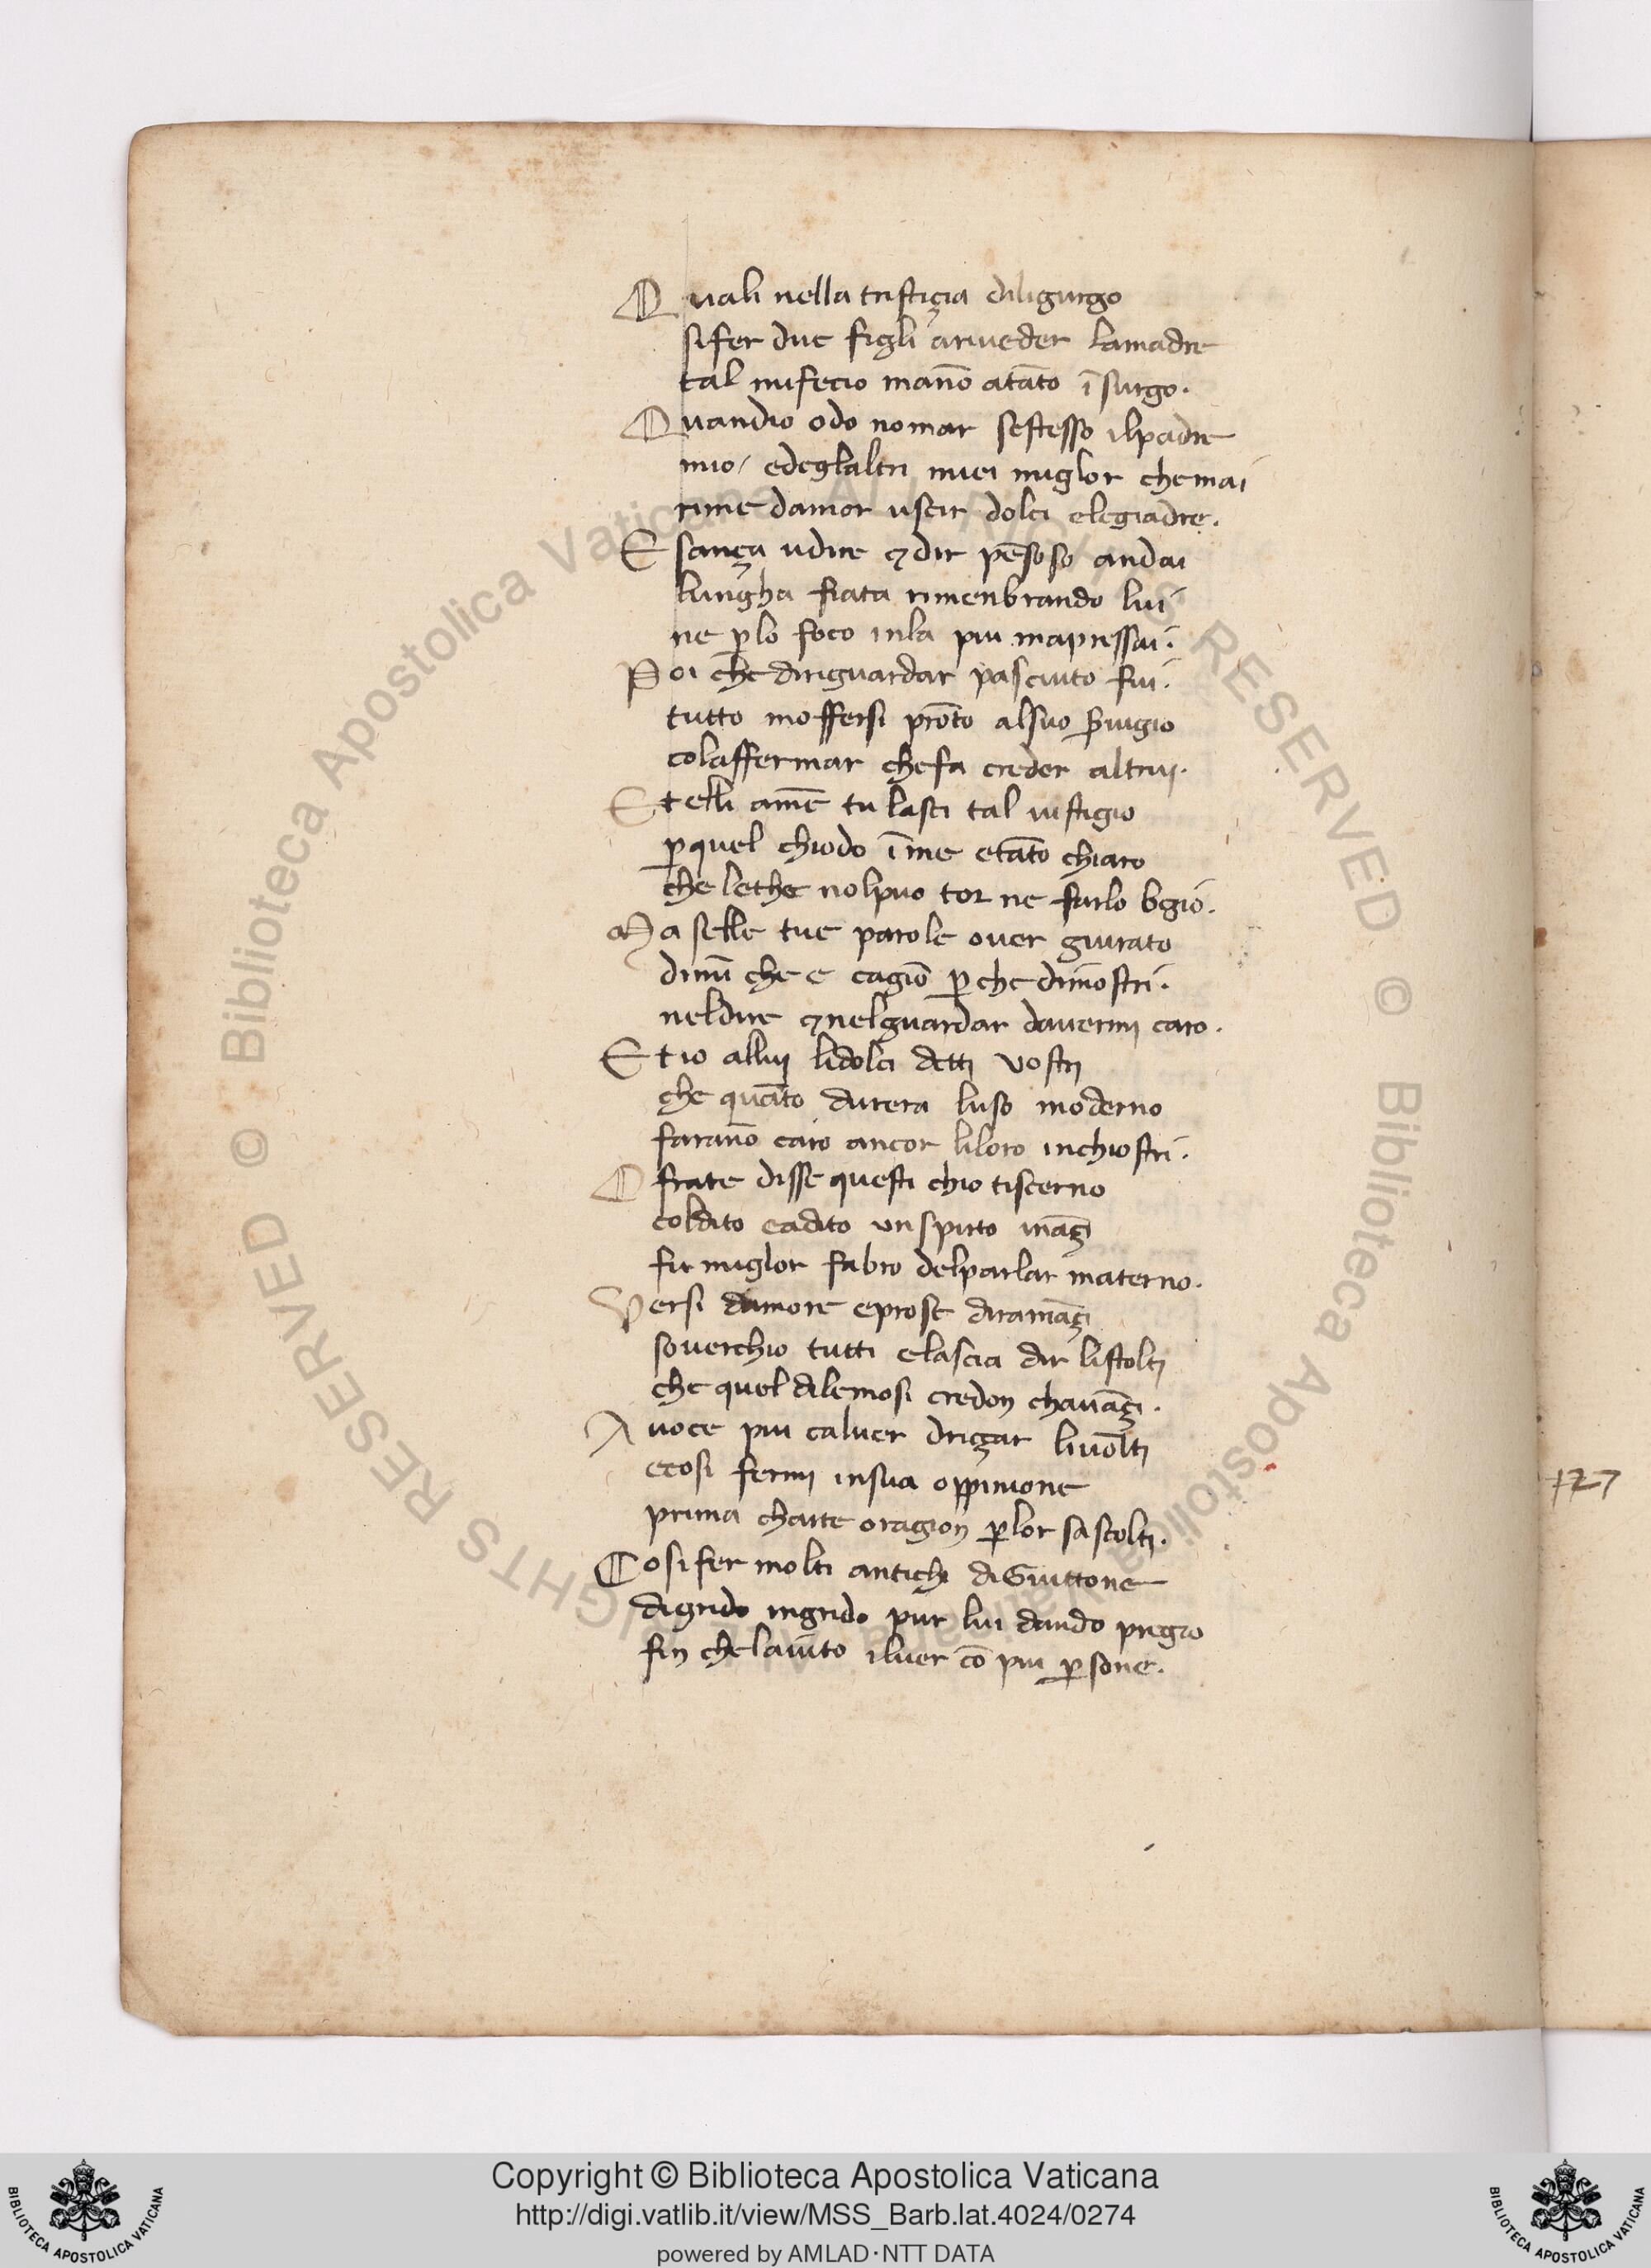 Quali nella tristiçia diligurgo
sifer due figli ariueder lamadre
tal mifecio manō atāto ī surgo.
Quandio odo nomar sestesso ilpadre
mio / edeglaltri miei miglor chemai
rime damor uscir dolci elegiadre.
E sança udire ⁊ dir pēsoso andai
lungha fiata rimenbrando lui
ne ꝑlo foco inla piu mapressai.
Poi che diriguardar pasciuto fui.
tutto moffersi prōto alsuo s̄uigio
colaffermar chefa creder altrui.
Et elli amē tu lasci tal uistigio
ꝑquel chiodo ī me etāto chiaro
che lethe nolpuo tor ne farlo bgio.
Ma selle tue parole ouer giurato
dimī che e cagiō ꝑche dimostri.
neldire ⁊ nelguardar dauermi caro.
Et io allui lidolci detti vostri
che quāto durera luso moderno
farāno caro ancor liloro inchiostri.
O frate disse questi chio tiscerno
coldito eadito un spirto ināçi
fu miglor fabro delparlar materno.
Versi damore eprose diramāçi
souerchio tutti elascia dir listolti
che quel dilemosi credon chauāçi.
A uoce piu caluer driçar liuolti
ecosi fermi insua oppinione
prima charte oragion ꝑlor sascolti.
Cosi fer molti antichi diGuittone
digrido ingrido pur lui dando pregio
fin chelauīto iluer cō piu ꝑsone.
127
Copyright © Biblioteca Apostolica Vaticana
http://digi.vatlib.it/view/MSS_Barb.lat.4024/0274
powered by AMLAD·NTT DATA
BIBLIOTECA APOSTOLICA VATICANA
BIBLIOTECA APOSTOLICA VATICANA
© Biblioteca Apostolica Vaticana ALL RIGHTS RESERVED
© Biblioteca Apostolica Vaticana ALL RIGHTS RESERVED